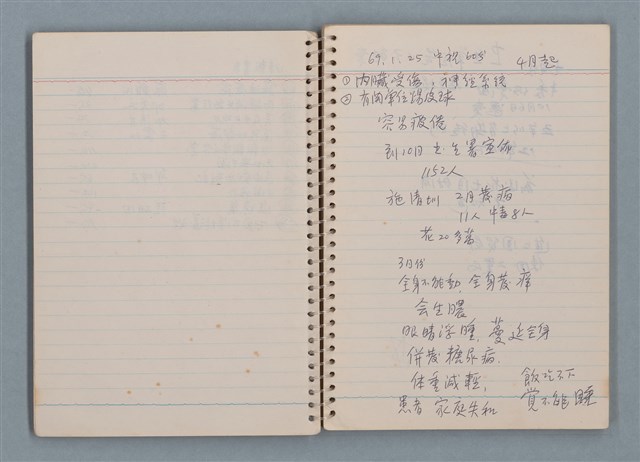 69.1.25 中視 60分 4月起
① 內臟受傷，神經系統
② 有関單位踢皮球
容易疲倦
到10月 衛生署宣佈
1152人
施清圳 2月發病
11人 中毒8人
花20多萬
3月份
全身不能動，全身發痒
会生膿
眼睛浮腫，蔓延全身
併發糖尿病.
体重減輕， 飯吃不下
患者 家庭失和 覚不能睡